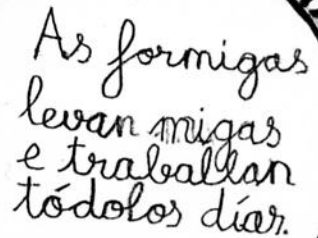 As formigas
levan migas
e traballan
tódolos días.